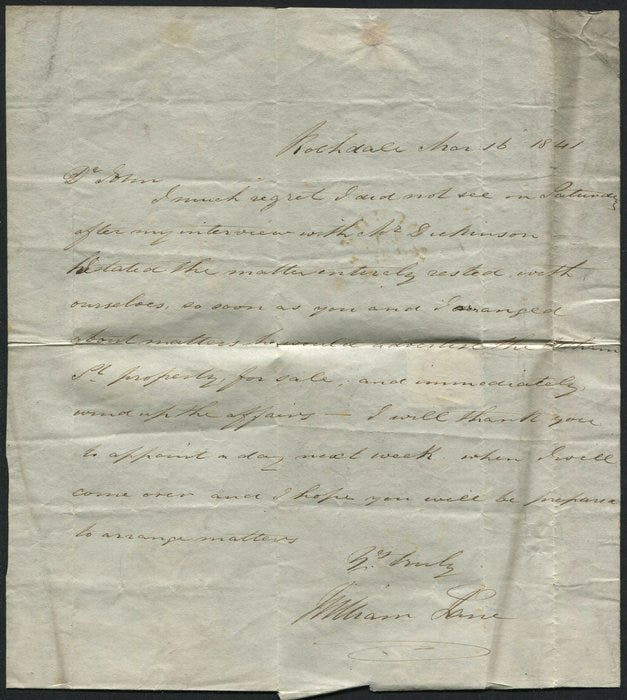 Rochdale Mar 16 1841
Dr John
I much regret I did not see on Saturday
after my interview with Mr Dickinson —
He stated the matter entirely rested with
ourselves, so soon as you and I arranged
about matters he would advertise the
St property, for sale, and immediately
wind up the affairs — I will thank you
to appoint a day next week when I will
come over and I hope you will be prepared
to arrange matters
Yrs truly
William Lane